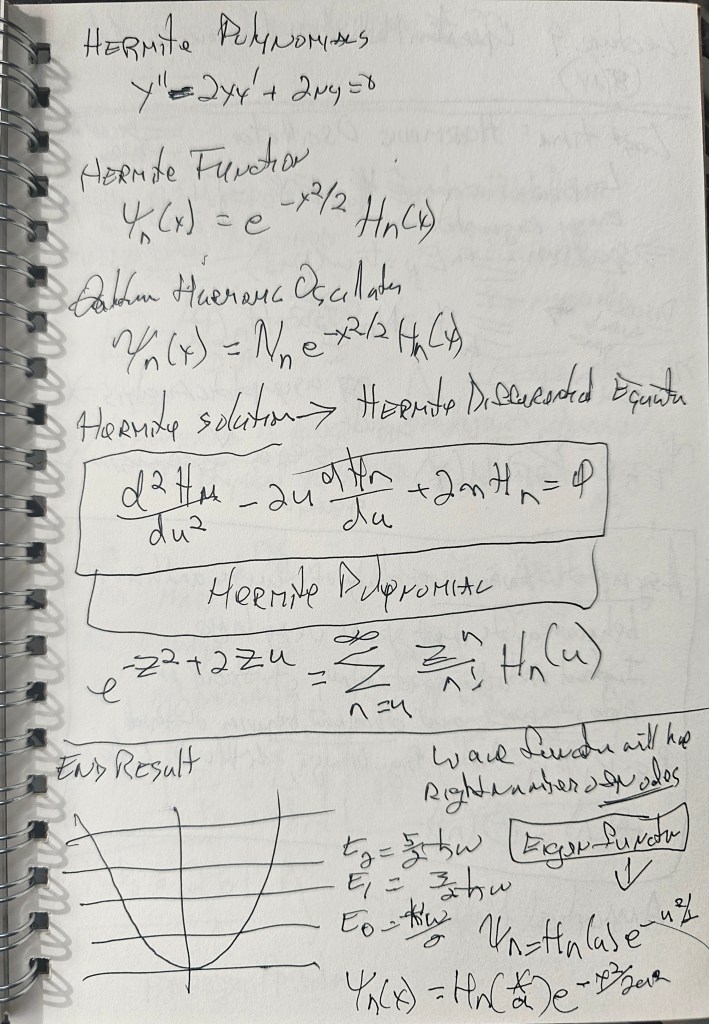 HERMite PolyNOMiALS
y'' - 2xy' + 2ny = 0
HERMite FUNction
ψn(x) = e^{-x²/2} Hn(x)
Oscillator
Ψn(x) = Nn e^{-x²/2} Hn(x)
HeRMite solution → HERMite Differential Equation
d²Hn/du² - 2u dHn/du + 2nHn = 0
HeRMite PolyNOMiAL
e^{-z²+2zu} = ∑_{n=u}^{∞} zⁿ/n! Hn(u)
END Result
wave function will have
Right number of nodes
E2 = 5/2 ħω
E1 = 3/2 ħω
E0 = ħω/2
Eigen-function
↓
Ψn = Hn(u) e^{-u²/2}
Ψn(x) = Hn(x/a) e^{-x²/2a²}